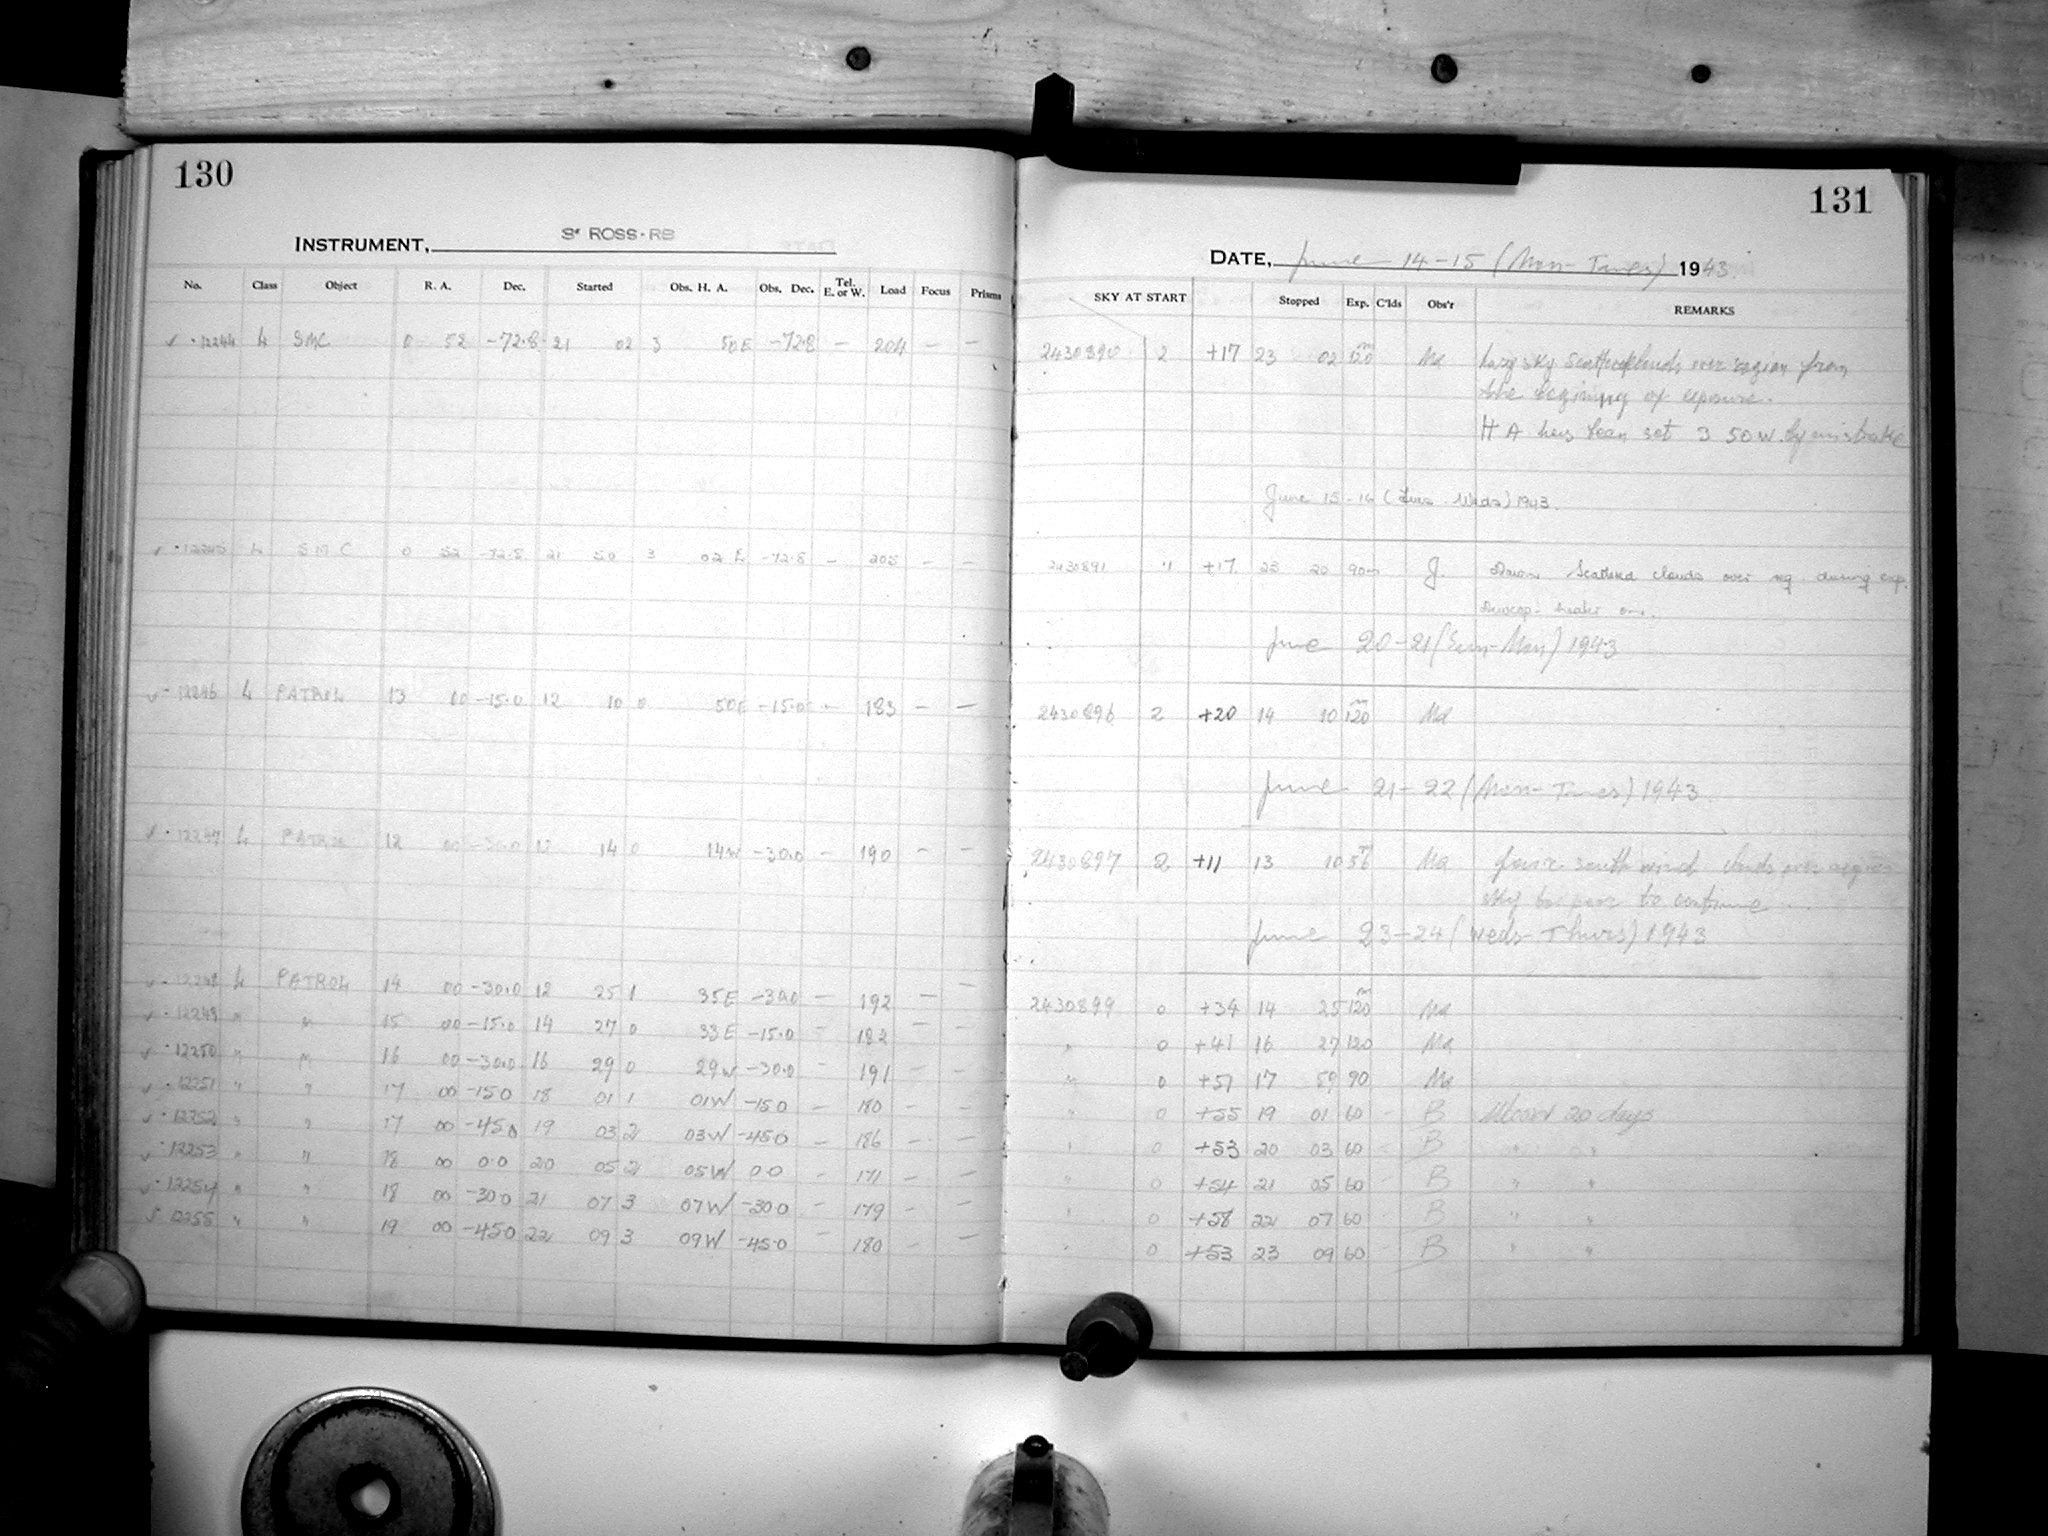 130
INSTRUMENT, 3" ROSS-RB
No. Class Object R. A. Dec. Started Obs. H. A. Obs. Dec. Tel. E. or W. Load Focus Prisms
✓ · 12244 L SMC 0 52 -72.8 21 02 3 50E -72.8 — 204 — —
✓ · 12245 L SMC 0 52 -72.8 21 50 3 02 E -72.8 — 205 — —
✓ · 12246 L PATROL 13 00 -15.0 12 10 0 50E -15.0 — 183 — —
✓ · 12247 L PATROL 12 00 -30.0 12 14 0 14W -30.0 — 190 — —
✓ · 12248 L PATROL 14 00 -30.0 12 25 1 35E -30.0 — 192 — —
✓ · 12249 " " 15 00 -15.0 14 27 0 33E -15.0 — 182 — —
✓ · 12250 " " 16 00 -30.0 16 29 0 29W -30.0 — 191 — —
✓ · 12251 " " 17 00 -15.0 18 01 1 01W -15.0 — 180 — —
✓ · 12252 " " 17 00 -45.0 19 03 2 03W -45.0 — 186 — —
✓ · 12253 " " 18 00 0.0 20 05 2 05W 0.0 — 171 — —
✓ · 12254 " " 18 00 -30.0 21 07 3 07W -30.0 — 179 — —
✓ 12255 " " 19 00 -45.0 22 09 3 09W -45.0 — 180 — —
131
DATE, June 14-15 (Mon-Tues) 1943
SKY AT START Stopped Exp. C'lds Obs'r REMARKS
2430890 2 +17 23 02 120m Ma Hazy sky scattered clouds over region from
the begining of exposure.
H A has been set 3 50W by mistake
June 15-16 (Tues-Weds) 1943.
2430891 1 +17 23 20 90m J. Scattered clouds over reg. during exp.
Dewcap heater on.
June 20-21 (Sun-Mon) 1943
2430896 2 +20 14 10 120m Ma
June 21-22 (Mon-Tues) 1943
2430897 2 +11 13 10 56m Ma south wind clouds over region
sky too poor to continue
June 23-24 (Weds-Thurs) 1943
2430899 0 +34 14 25 120m Ma
" 0 +41 16 27 120 Ma
" 0 +51 17 59 90 Ma
" 0 +55 19 01 60 - B Moon 20 days
" 0 +53 20 03 60 - B " "
" 0 +54 21 05 60 - B " "
" 0 +58 22 07 60 - B " "
" 0 +53 23 09 60 - B " "